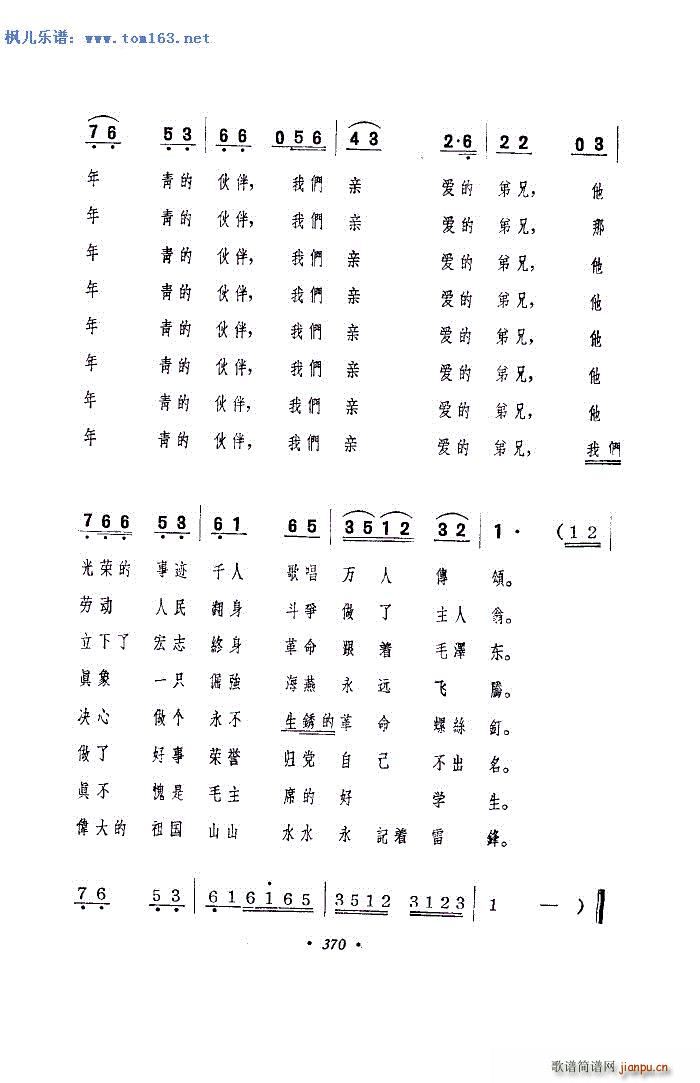 枫儿乐谱：www.tom163.net
7 6 5 3 | 6 6 0 5 6 | 4 3 2·6 | 2 2 0 3 |
年 青的 伙伴，我們 亲 爱的 弟兄，他
年 青的 伙伴，我們 亲 爱的 弟兄，那
年 青的 伙伴，我們 亲 爱的 弟兄，他
年 青的 伙伴，我們 亲 爱的 弟兄，他
年 青的 伙伴，我們 亲 爱的 弟兄，他
年 青的 伙伴，我們 亲 爱的 弟兄，他
年 青的 伙伴，我們 亲 爱的 弟兄，他
年 青的 伙伴，我們 亲 爱的 弟兄，我們
7 6 6 5 3 | 6 1 6 5 | 3 5 1 2 3 2 | 1· (1 2 |
光荣的 事迹 千人 歌唱 万 人 傳 頌。
劳动 人民 翻身 斗爭 做 了 主人 翁。
立下了 宏志 終身 革命 跟 着 毛澤 东。
眞象 一只 倔強 海燕 永 远 飞 騰。
决心 做个 永不 生銹的 革 命 螺絲 釘。
做了 好事 荣誉 归党 自 己 不出 名。
眞不 愧是 毛主 席的 好 学 生。
偉大的 祖国 山山 水水 永 記着 雷 鋒。
7 6 5 3 | 6 1 6 1 6 5 | 3 5 1 2 3 1 2 3 | 1 — )‖
· 370 ·
歌谱简谱网
jianpu.cn